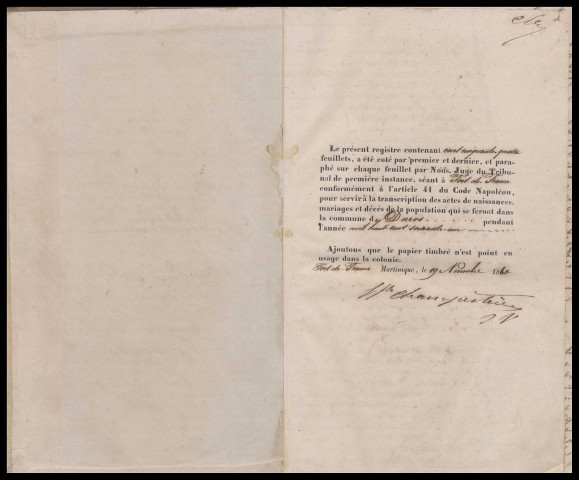 Le présent registre contenant cent cinquante quatre
feuillets, a été coté par premier et dernier, et para-
phé sur chaque feuillet par Nous, Juge du Tribu-
nal de première instance, séant à Fort de France
conformément à l'article 41 du Code Napoléon,
pour servir à la transcription des actes de naissances,
mariages et décès de la population qui se feront dans
la commune du Ducos pendant
l'année mil huit cent soixante un
Ajoutons que le papier timbré n'est point en
usage dans la colonie.
Fort de France Martinique, le 19 Novembre 1860